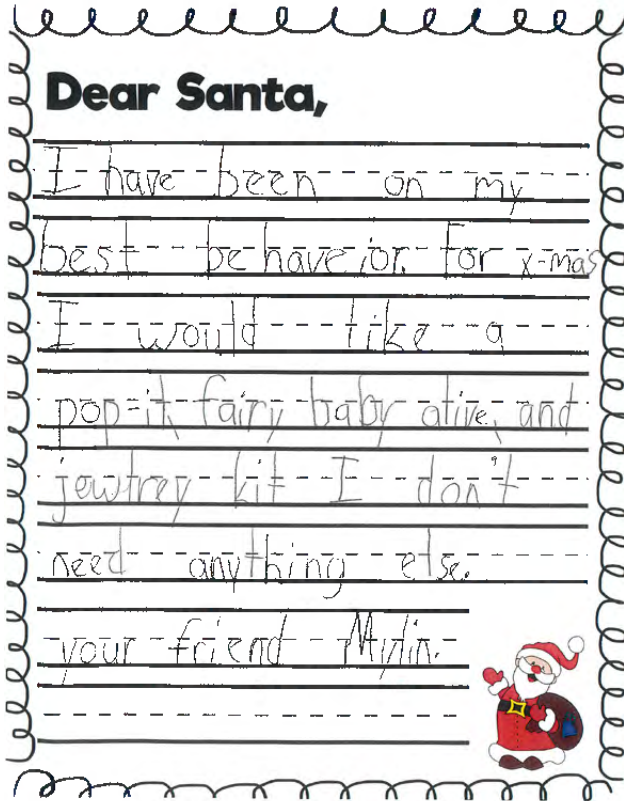 Dear Santa,
I have been on my
best behaveior. For x-mas
I would like a
pop-it, fairy baby alive, and
jewlrey kit I don't
need anything else.
your friend Mylin.